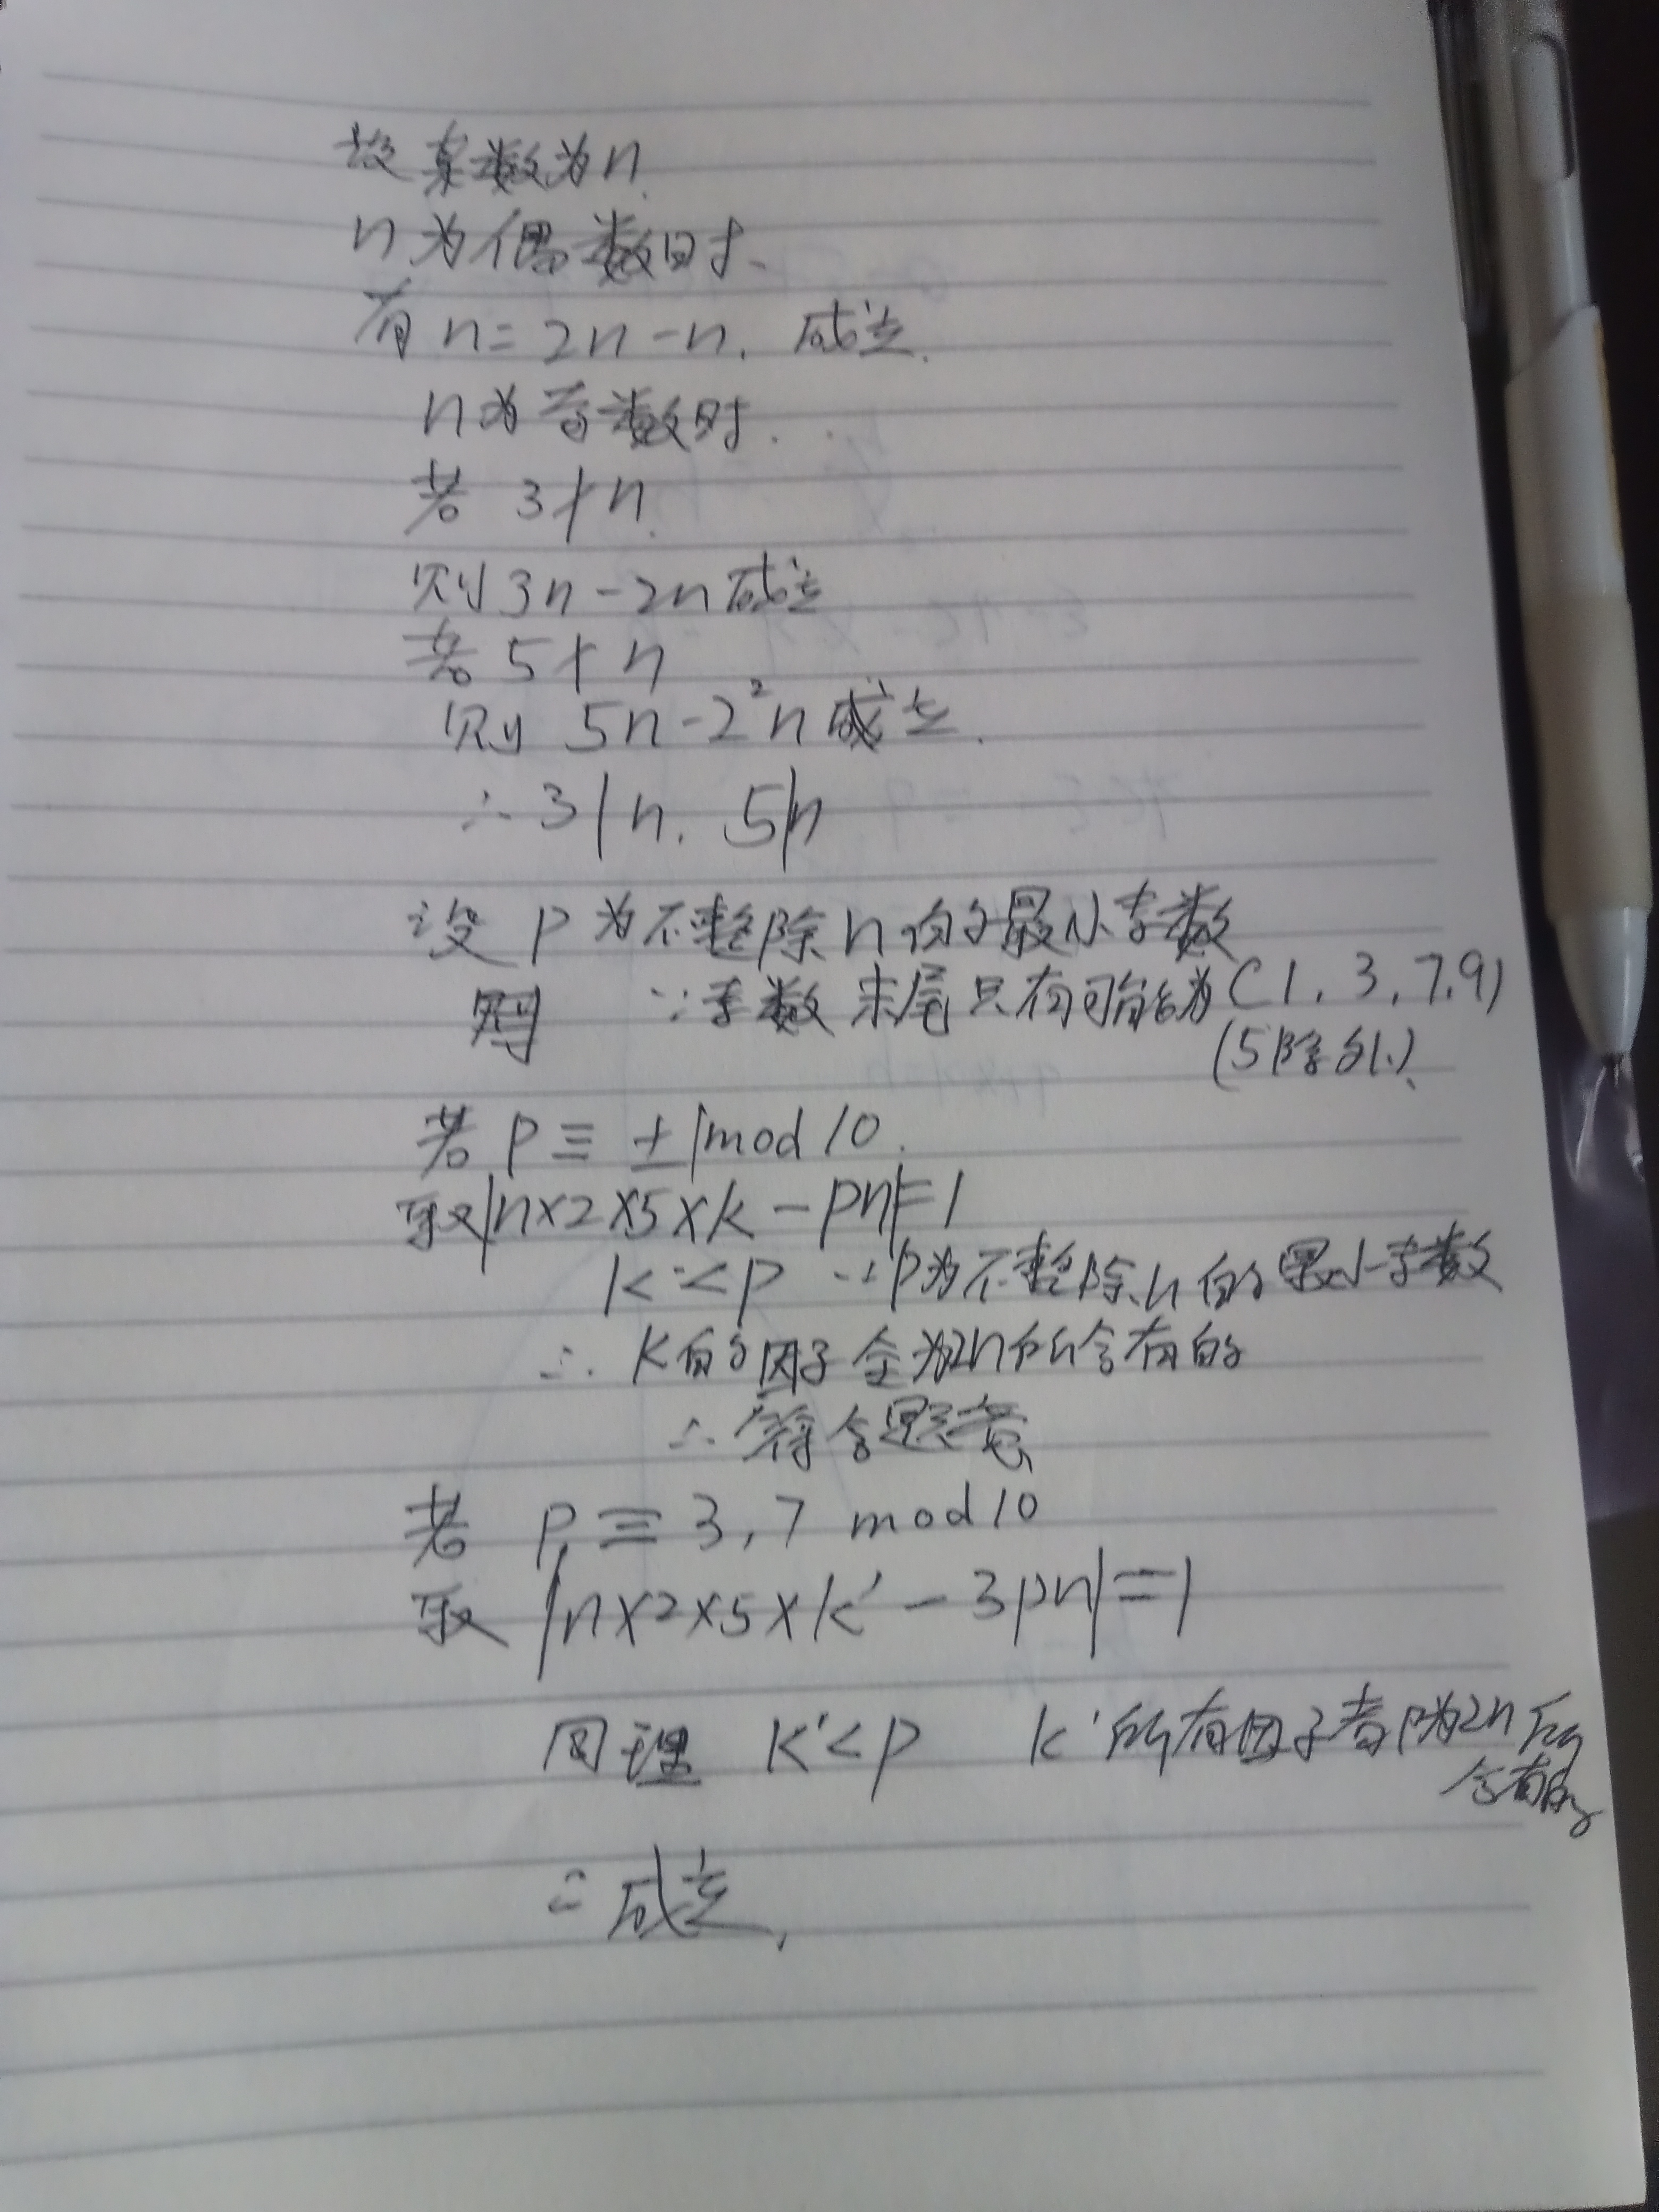 设某数为n.
n为偶数时.
有 n=2n-n. 成立.
n为奇数时.
若 3∤n.
则 3n-2n成立
若 5∤n
则 5n-2²n成立.
∴3|n. 5|n
设 p 为不整除n的最小素数
则 ∵素数末尾只有可能为(1,3,7,9)
(5除外)
若 p≡±1mod10.
取|n×2×5×k-pn|=1
k<p ∵p为不整除n的最小素数
∴k的因子全为2n所含有的
∴符合题意
若 p≡3,7 mod10
取 |n×2×5×k'-3pn|=1
同理 k'<p k'所有因子都为2n所
含有的
∴成立,